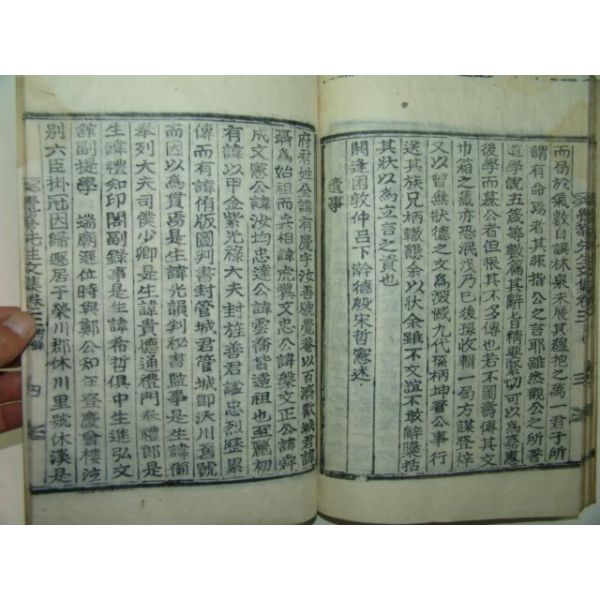 而局於氣數自誤林泉未展其經抱之萬一君子所
謂有命焉者其非指公之言耶雖然觀公之所著
道學說五箴等數篇其辭旨精要緊切可以為嘉惠
後學而慕公者其不多傳也若不圖壽傳其文
巾箱之藏亦恐泯沒乃已後孫收輯一局方謀登梓
又以曾無狀德之文為深慽九代孫柄坤公事行
送其族兄柄轍懇余以狀余雖不文誼不敢解櫽括
其狀以為立言之資也
閼逢困敦仲呂下澣德殷宋哲憲述
遺事
覺菴先生文集卷二
府君姓公諱有慶字汝善號覺菴以百濟歡城君諱
聶為始祖而兵相諱虎翼文忠公諱槃文正公諱舜
成文憲公諱汝均忠達公諱雲喬皆遠祖也至麗初
有諱以甲金紫光祿大夫封旌善君諡忠烈歷累
傳而有諱侑版圖判書封管城君管城即沃川舊號
而因以為貫焉是生諱光韻判秘書監事是生諱備
奉列大夫司僕少卿是生諱貴德通禮門奉禮郎是
生諱禮知印閣副錄事是生諱希哲俱中生進弘文
館副提學 端廟遜位時與鄭公知年登慶會樓泣
別六臣掛冠因歸遯居于榮川郡休川里號休溪是
覺菴先生文集卷二
四